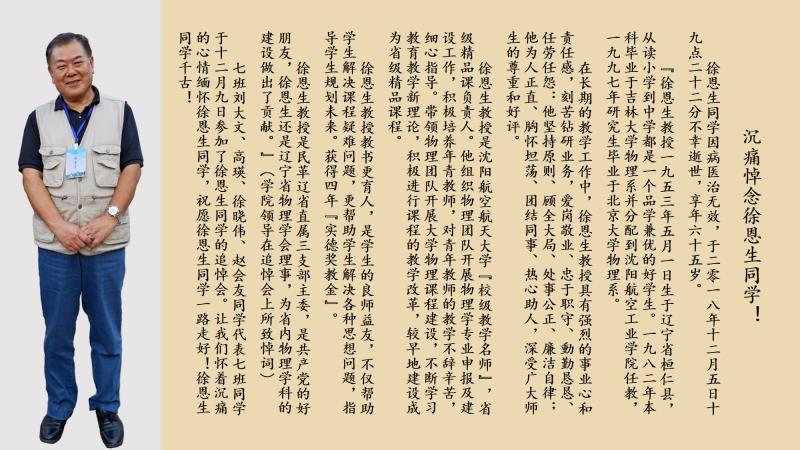 沉痛悼念徐恩生同学！
徐恩生同学因病医治无效，于二零一八年十二月五日十
九点二十二分不幸逝世，享年六十五岁。
『徐恩生教授一九五三年五月一日生于辽宁省桓仁县，
从读小学到中学都是一个品学兼优的好学生。一九八二年本
科毕业于吉林大学物理系并分配到沈阳航空工业学院任教，
一九九七年研究生毕业于北京大学物理系。
在长期的教学工作中，徐恩生教授具有强烈的事业心和
责任感，刻苦钻研业务，爱岗敬业、忠于职守、勤勤恳恳、
任劳任怨；他坚持原则、顾全大局、处事公正、廉洁自律；
他为人正直、胸怀坦荡、团结同事、热心助人，深受广大师
生的尊重和好评。
徐恩生教授是沈阳航空航天大学『校级教学名师』，省
级精品课负责人。他组织物理团队开展物理学专业申报及建
设工作，积极培养年青教师，对青年教师的教学不辞辛苦，
细心指导。带领物理团队开展大学物理课程建设，不断学习
教育教学新理论，积极进行课程的教学改革，较早地建设成
为省级精品课程。
徐恩生教授教书更育人，是学生的良师益友，不仅帮助
学生解决课程疑难问题，更帮助学生解决各种思想问题，指
导学生规划未来。获得四年『实德奖教金』。
徐恩生教授是民革辽省直属三支部主委，是共产党的好
朋友，徐恩生还是辽宁省物理学会理事，为省内物理学科的
建设做出了贡献。』（学院领导在追悼会上所致悼词）
七班刘大文、高瑛、徐晓伟、赵会友同学代表七班同学
于十二月九日参加了徐恩生同学的追悼会。让我们怀着沉痛
的心情缅怀徐恩生同学，祝愿徐恩生同学一路走好！徐恩生
同学千古！